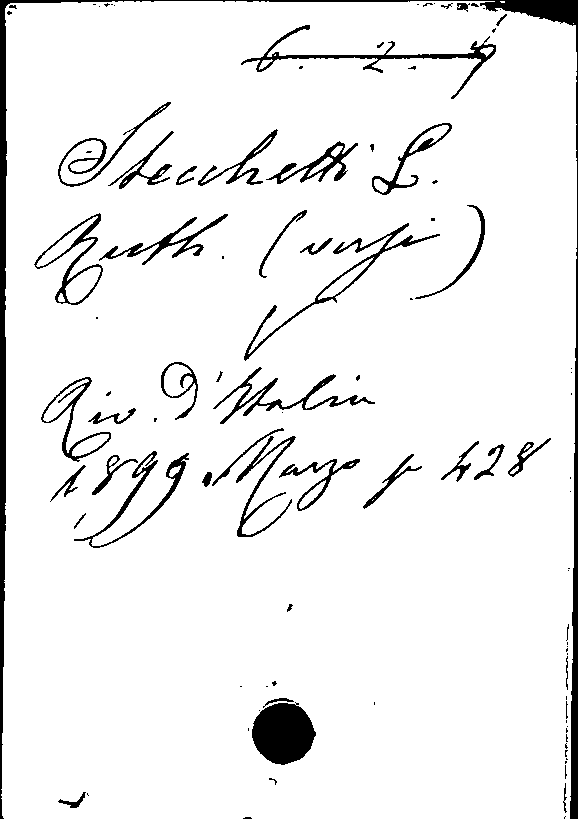 6. 2. 7
Stecchetti L.
Ruth. (versi)
V
Riv. d'Italia
1899. Marzo p 428